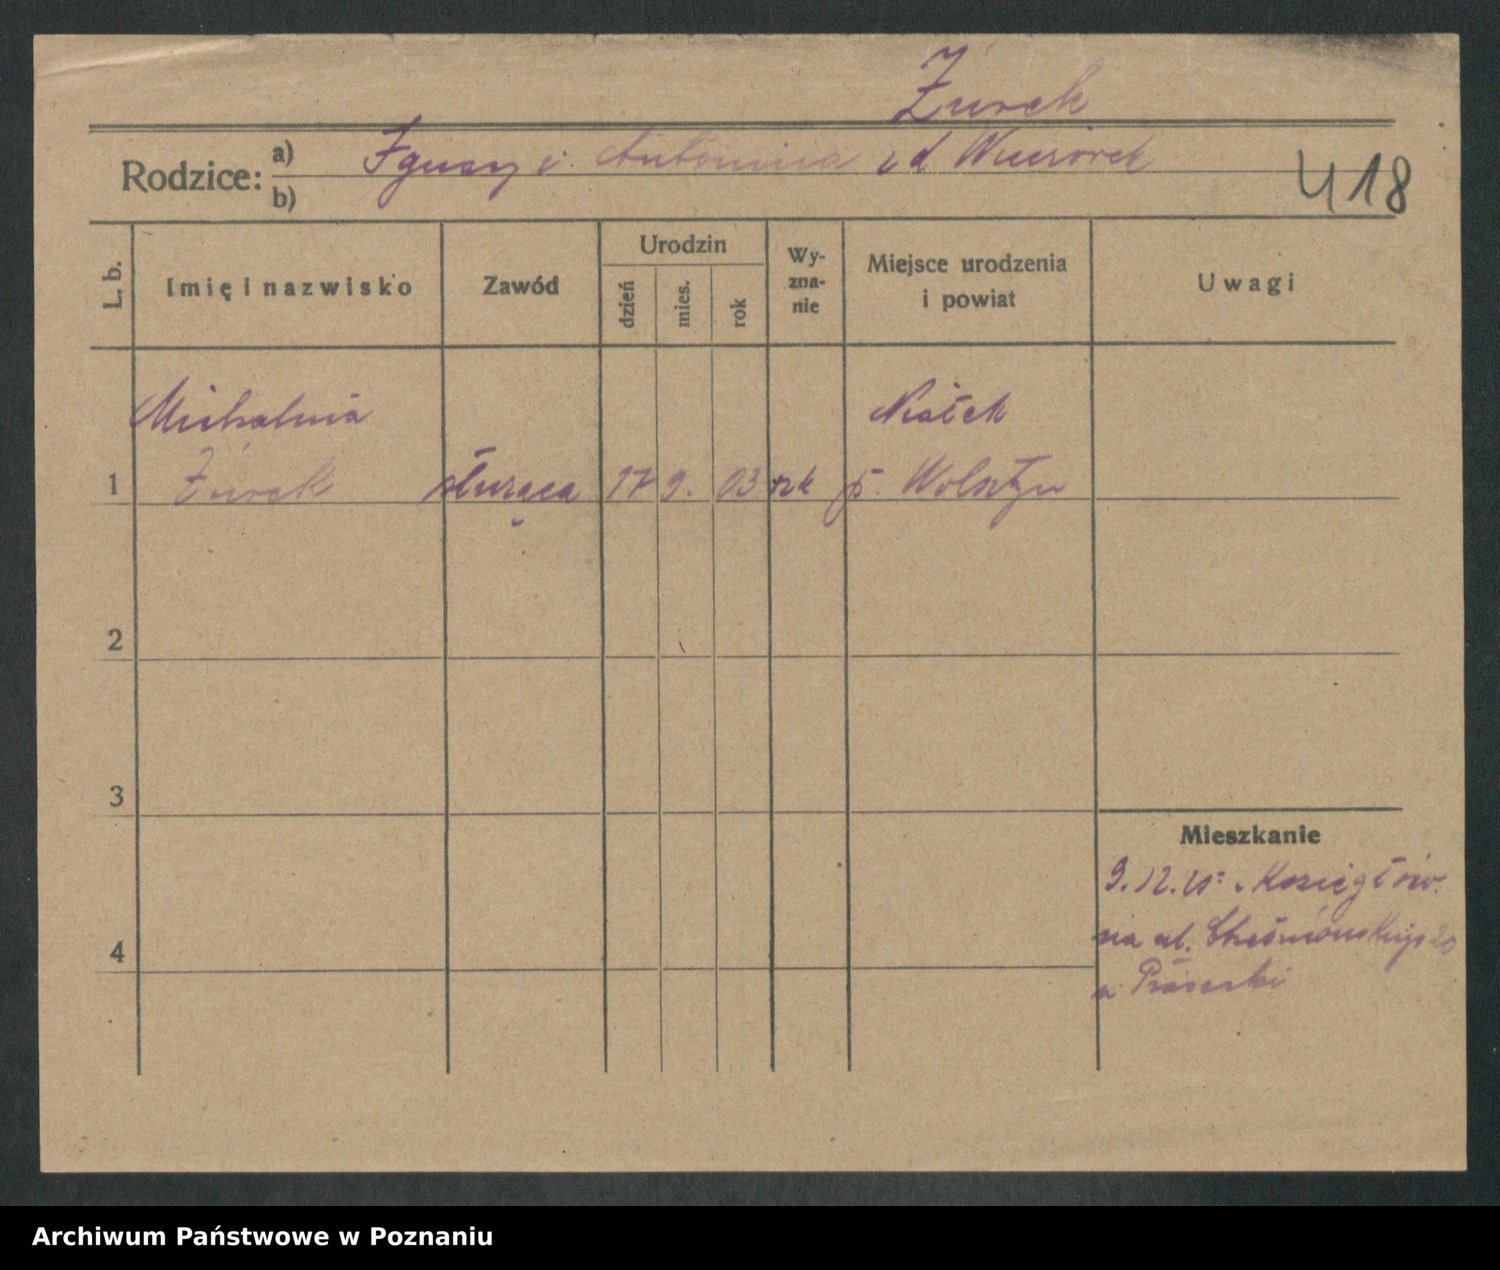 Żurek
Rodzice:
a) Ignacy i Antonina z d. Wieczorek
b)
418
L. b.
Imię i nazwisko
Zawód
Urodzin
dzień
mies.
rok
Wy-
zna-
nie
Miejsce urodzenia
i powiat
Uwagi
Michalina
Niałek
1 Żurek służąca 17 9. 03 rzk p. Wolsztyn
2
3
4
Mieszkanie
9.12.
na ul. 20
u
Archiwum Państwowe w Poznaniu